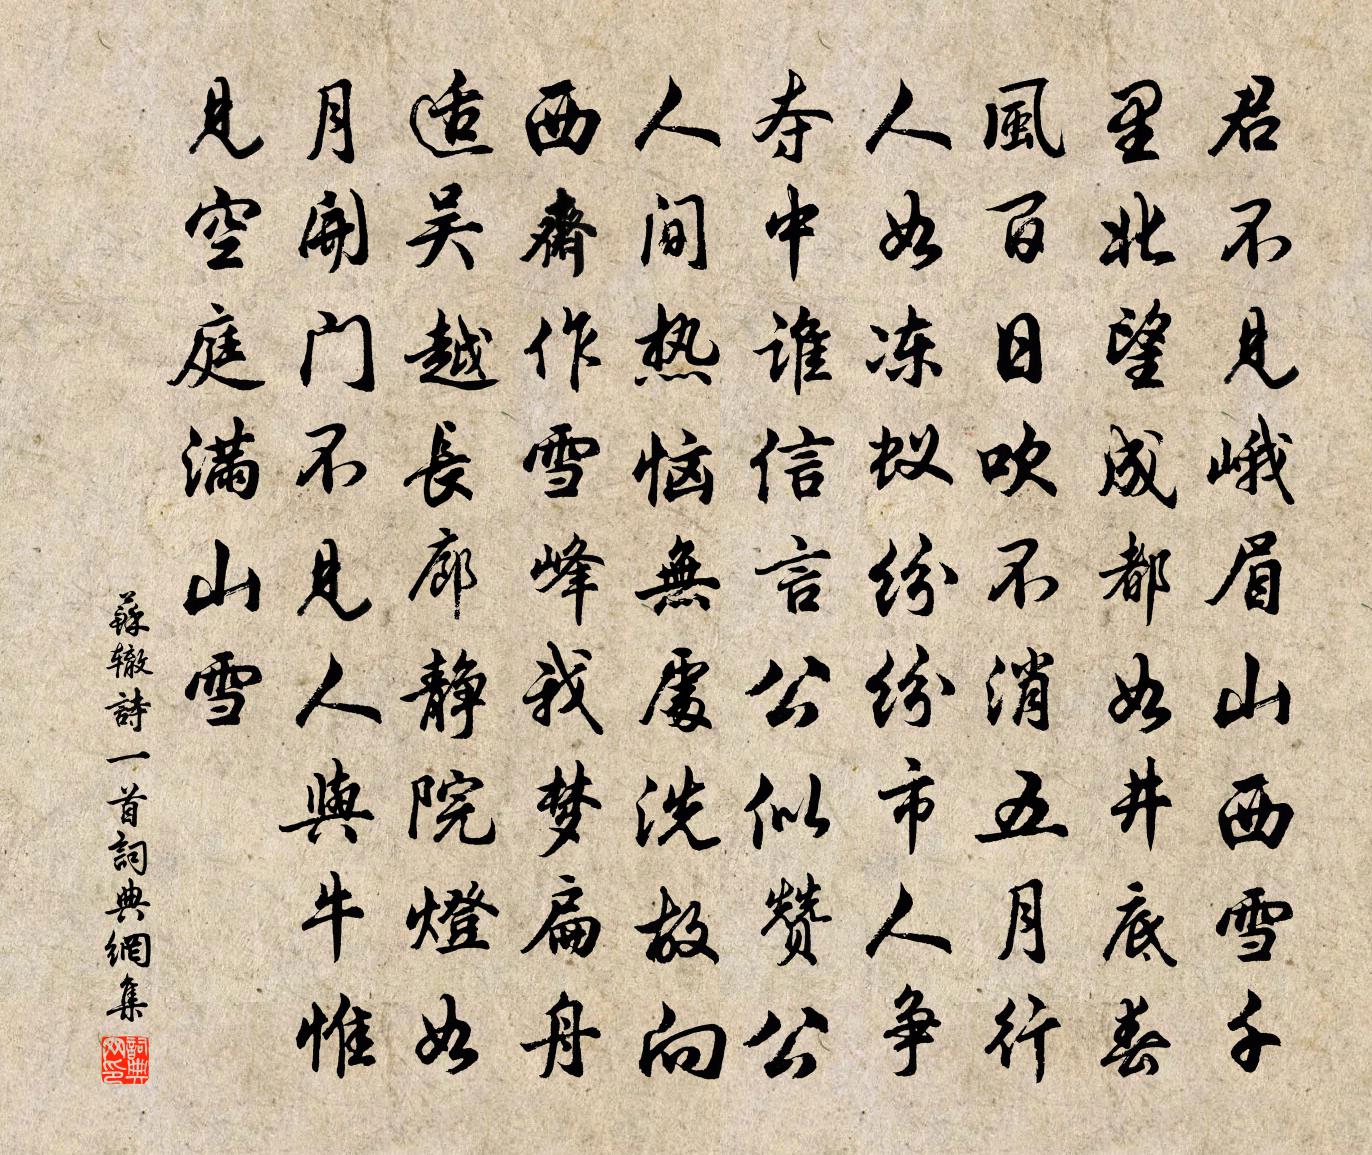 君不見峨眉山西雪千
里北望成都如井底春
風百日吹不消五月行
人如冻蚁纷纷市人争
夺中谁信言公似赞公
人间热恼無處洗故向
西齋作雪峰我梦扁舟
适吴越長廊静院燈如
月開门不見人與牛惟
見空庭满山雪
蘇辙詩一首詞典網集
詞典网印